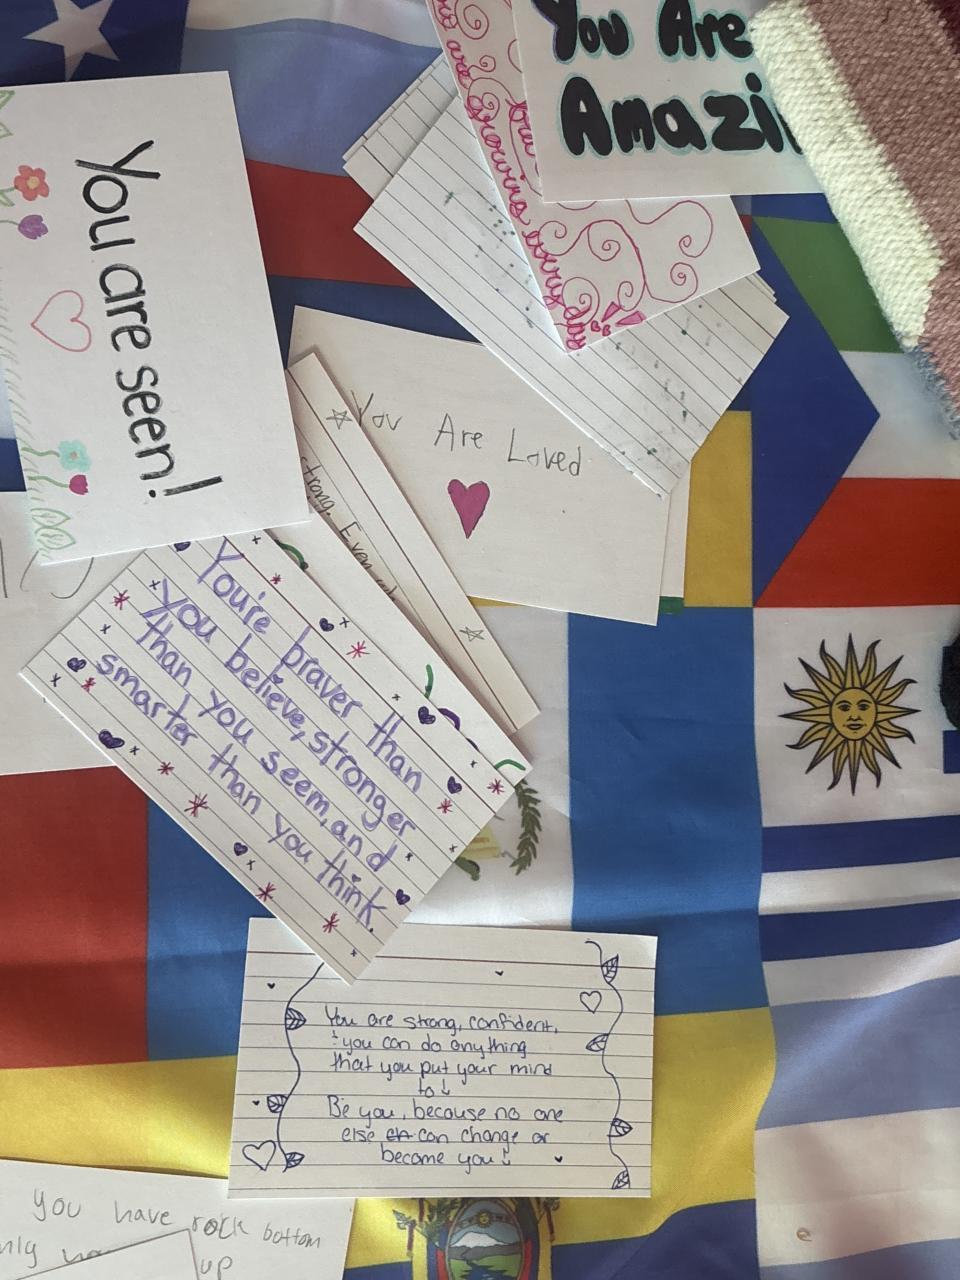 You Are
Amazi
are growing every day
You are seen!
You Are Loved
strong. Even
You're braver than
you believe, stronger
than you seem, and
smarter than you think.
You are strong, confident,
& you can do anything
that you put your mind
to!
Be you, because no one
else can change or
become you!
you have rock bottom
up